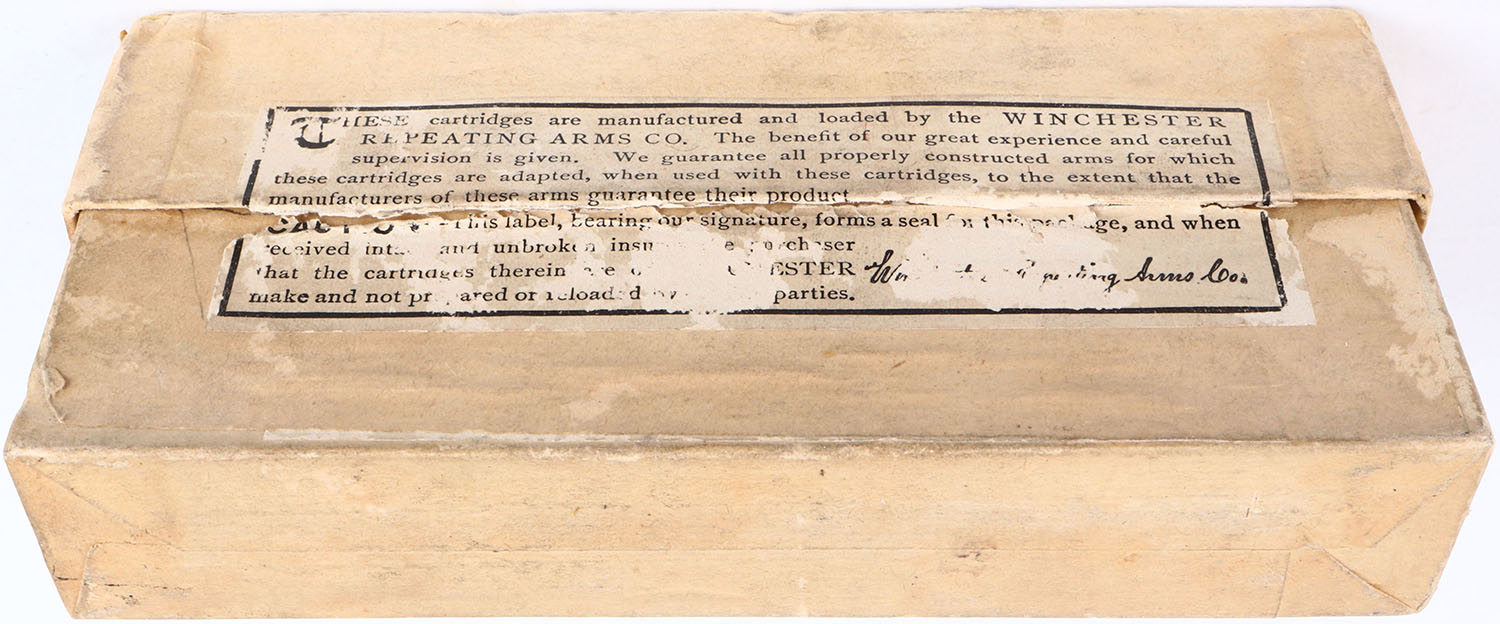 THESE cartridges are manufactured and loaded by the WINCHESTER
REPEATING ARMS CO. The benefit of our great experience and careful
supervision is given. We guarantee all properly constructed arms for which
these cartridges are adapted, when used with these cartridges, to the extent that the
manufacturers of these arms guarantee their product
This label, bearing our signature, forms a seal this package, and when
received and unbroken
that the cartridges therein are
make and not prepared or reloaded parties. Arms Co.